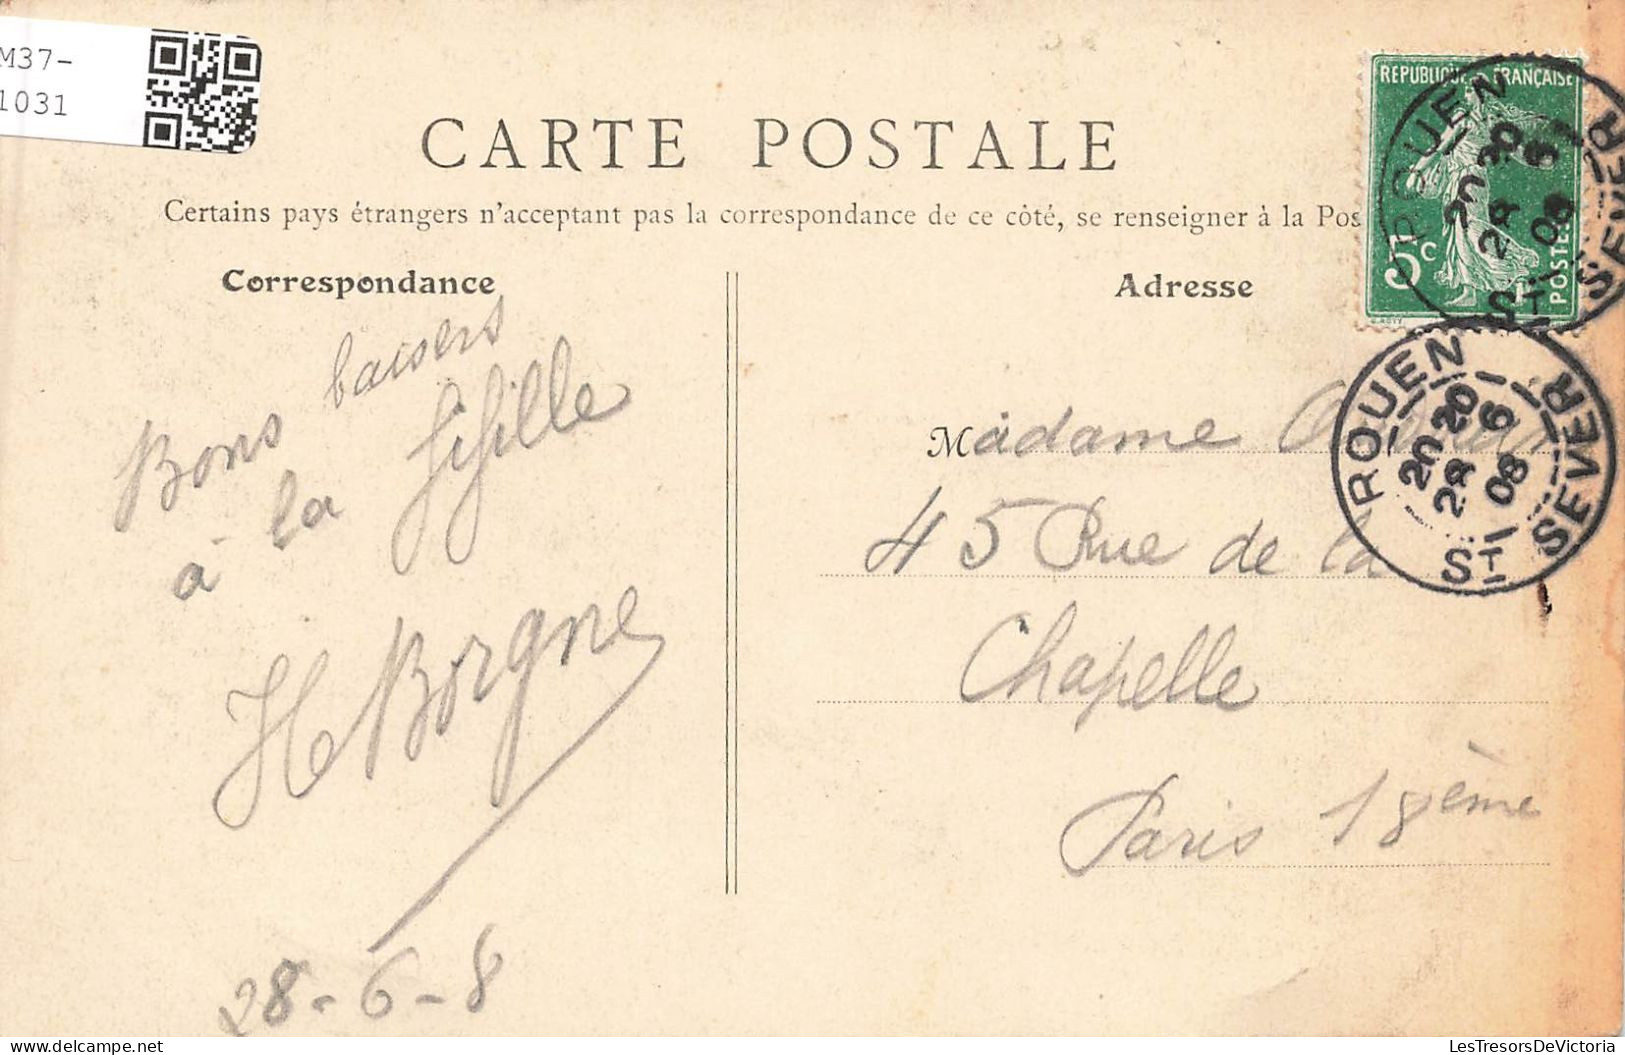 M37-
1031
CARTE POSTALE
Certains pays étrangers n'acceptant pas la correspondance de ce côté, se renseigner à la Pos
Correspondance
Adresse
RÉPUBLIQUE FRANÇAISE
5c
POSTES
O. ROTY
ROUEN
20 30
28 6
08
ST SEVER
ROUEN
20 20
28 6
08
ST SEVER
Bons baisers
à la fifille
H Borgne
28-6-8
Madame
45 Rue de la
Chapelle
Paris 18ème
delcampe.net
LesTresorsDeVictoria